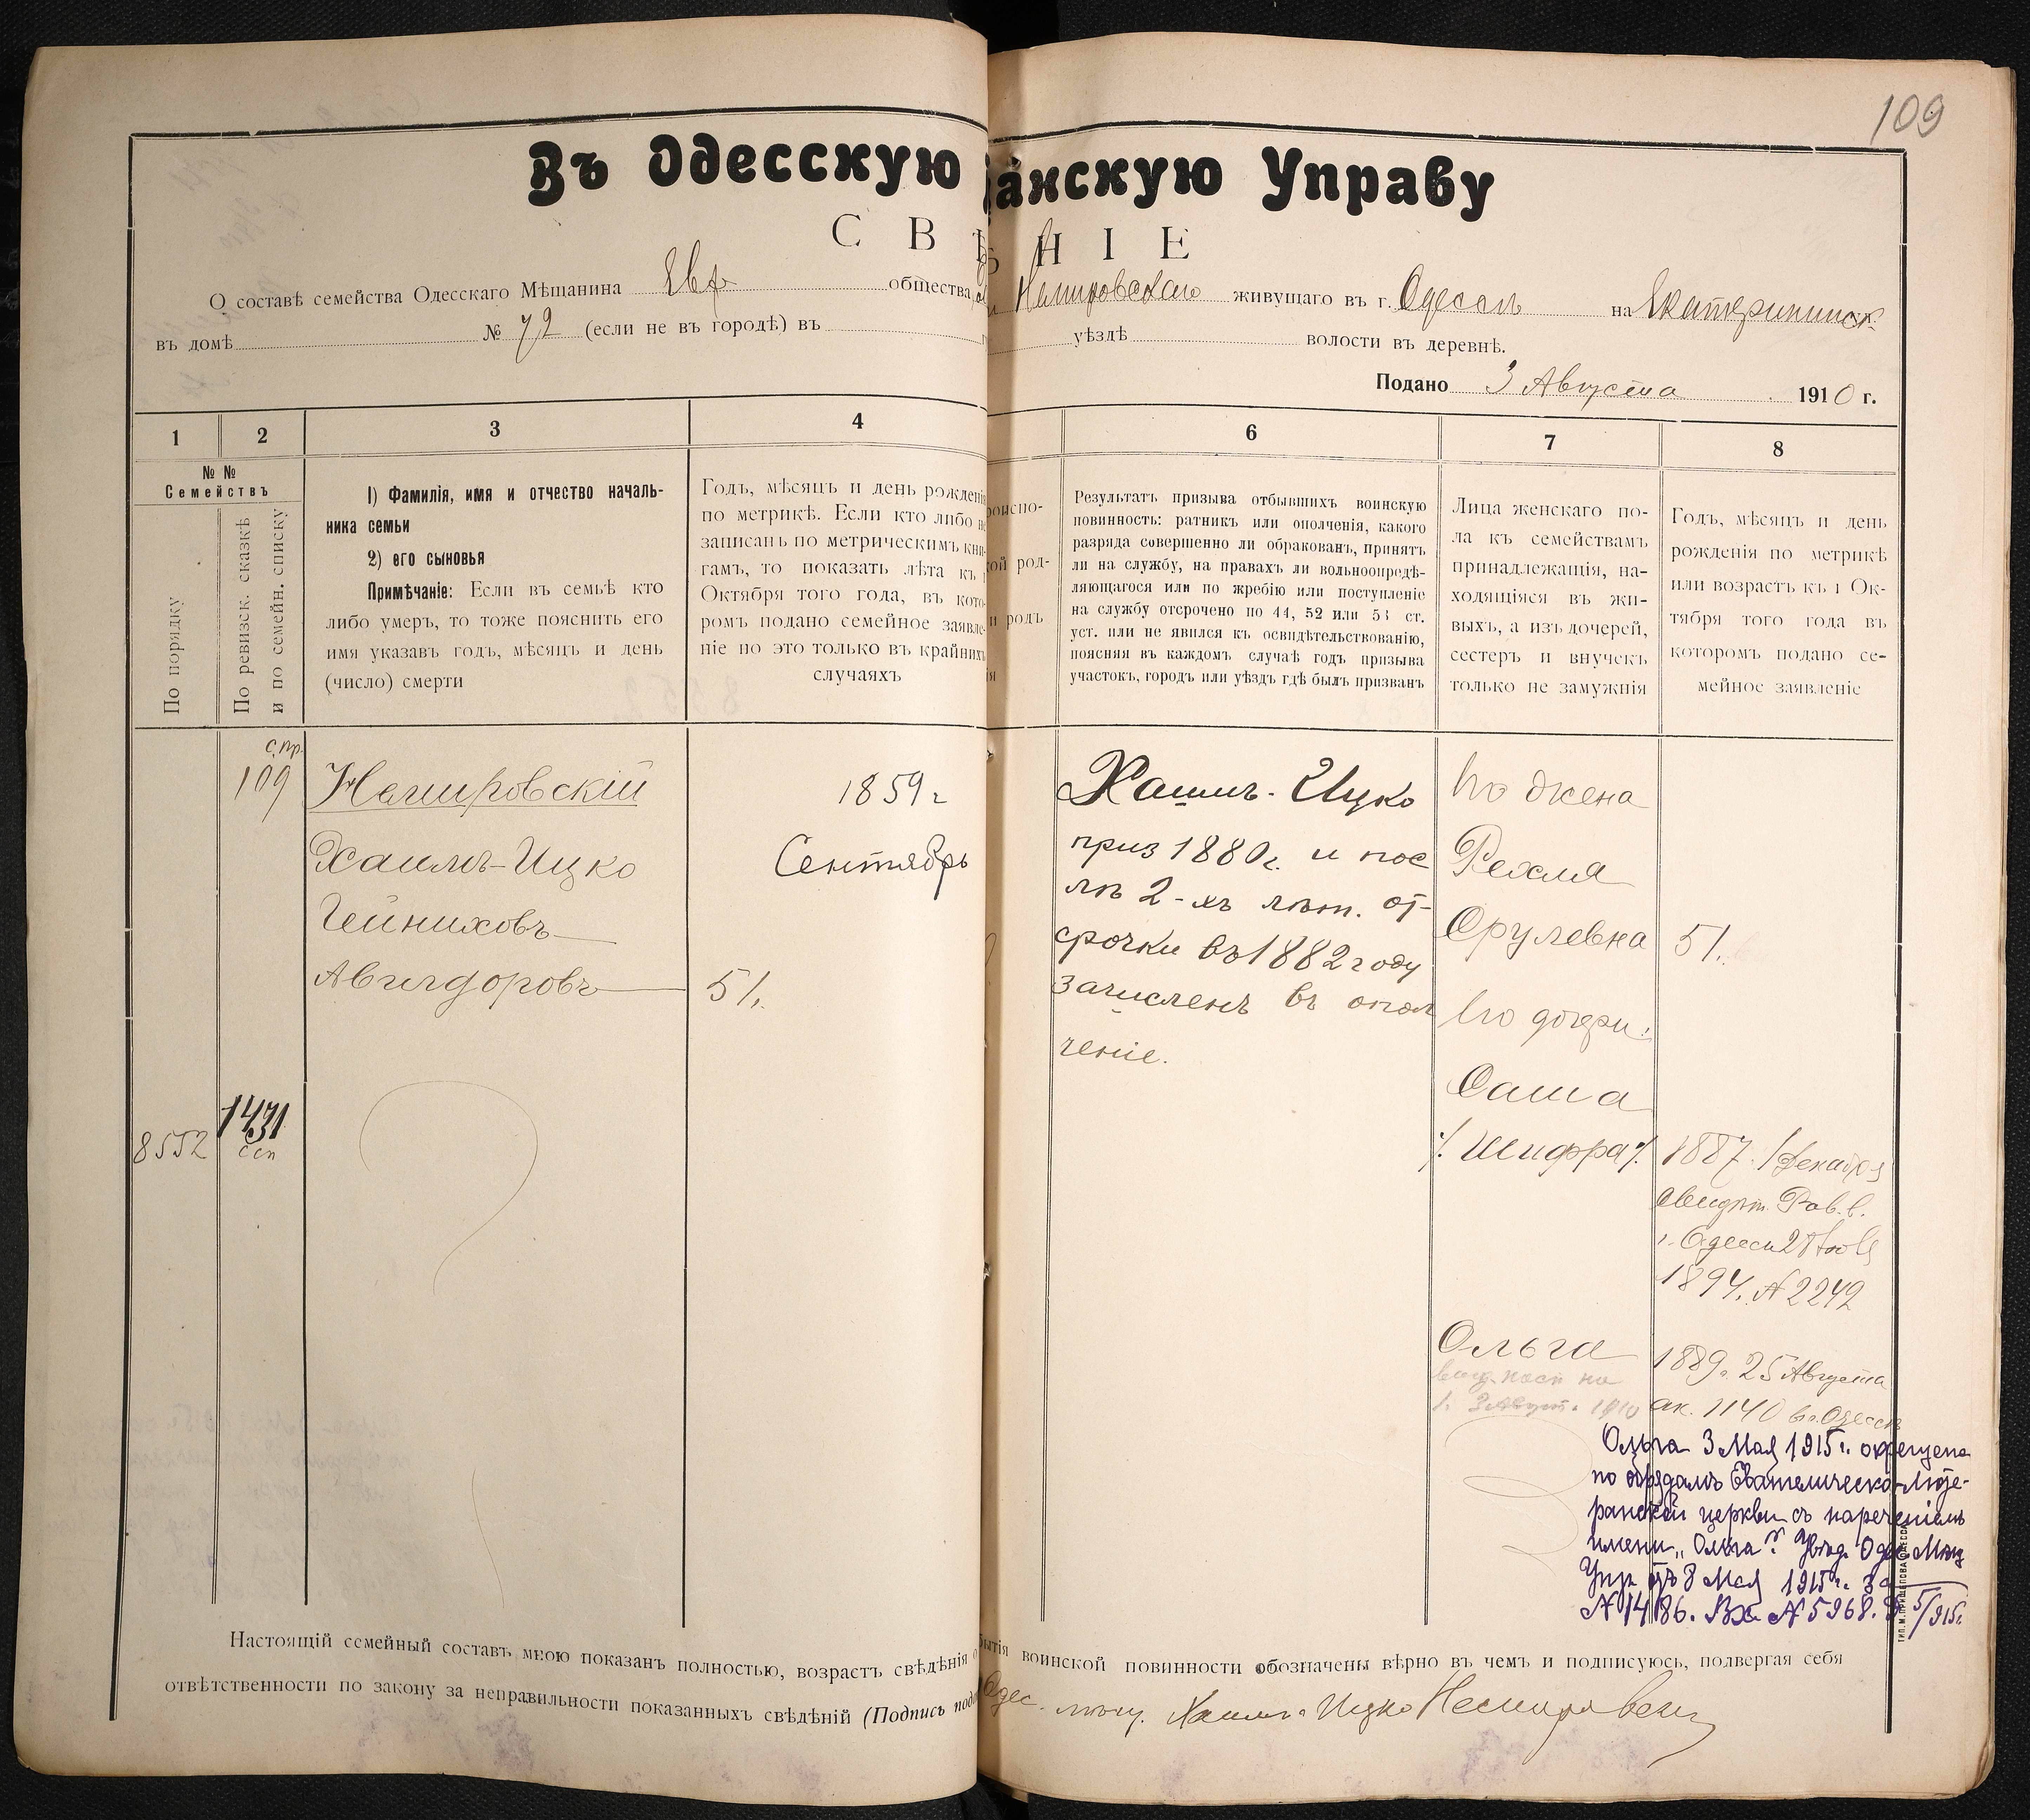 109
Въ Одесскую анскую Управу
С В Ѣ Н І Е
О составѣ семейства Одесскаго Мѣщанина Евр общества Немировскаго живущаго въ г. Одессѣ на Екатерининск.
въ домѣ № 72 (если не въ городѣ) въ уѣздѣ волости въ деревнѣ.
Подано 3 Августа 1910 г.
1 2 3 4 6 7 8
№ №
Семействъ
По порядку
По ревизск. сказкѣ
и по семейн. списку
1) Фамилія, имя и отчество началь-
ника семьи
2) его сыновья
Примѣчаніе: Если въ семьѣ кто
либо умеръ, то тоже пояснить его
имя указавъ годъ, мѣсяцъ и день
(число) смерти
Годъ, мѣсяцъ и день рожденія
по метрикѣ. Если кто либо не
записанъ по метрическимъ кни-
гамъ, то показать лѣта къ 1
Октября того года, въ кото-
ромъ подано семейное заявле-
ніе но это только въ крайнихъ
случаяхъ
роиспо-
ой род-
и родъ
ія
Результатъ призыва отбывшихъ воинскую
повинность: ратникъ или ополченія, какого
разряда совершенно ли обракованъ, принятъ
ли на службу, на правахъ ли вольноопредѣ-
ляющагося или по жребію или поступленіе
на службу отсрочено по 44, 52 или 53 ст.
уст. или не явился къ освидѣтельствованію,
поясняя въ каждомъ случаѣ годъ призыва
участокъ, городъ или уѣздъ гдѣ былъ призванъ
Лица женскаго по-
ла къ семействамъ
принадлежащія, на-
ходящіяся въ жи-
выхъ, а изъ дочерей,
сестеръ и внучекъ
только не замужнія
Годъ, мѣсяцъ и день
рожденія по метрикѣ
или возрастъ къ 1 Ок-
тября того года въ
которомъ подано се-
мейное заявленіе
с. пр.
109
8552
1431
ссп
Немировскій
Хаимъ-Ицко
Гейниховъ
Авигдоровъ
1859 г
Сентябрь
51.
Хаимъ-Ицко
приз 1880 г. и пос
лѣ 2-хъ лѣт. от-
срочки въ 1882 году
зачисленъ въ опол
ченіе.
Его жена
Рехля
Срулевна
51.
Его дочери:
Саша
/. Шифра /.
1887. 1 Декабря
свидѣт. Рав. в.
г. Одессы 28
1894. № 2242
Ольга
1889 г. 25 Августа
ак. 1140 въ г. Одессѣ
выд. пасп на
1 г. 3 Август. 1910
Ольга 3 Мая 1915 г. окрещена
по обрядамъ Евангелическо-Люте-
ранской церкви съ нареченіемъ
имени „Ольга". Увѣд. Одес. Мѣщ
Упр. отъ 8 Мая 1915 г. за
№ 1486. Вх. № 5968. 5/915 г.
Настоящій семейный составъ мною показанъ полностью, возрастъ свѣдѣнія о бытія воинской повинности обозначены вѣрно въ чемъ и подписуюсь, полвергая себя
отвѣтственности по закону за неправильности показанныхъ свѣдѣній (Подпись пода Одес. мѣщ. Хаимъ-Ицко Немировскій